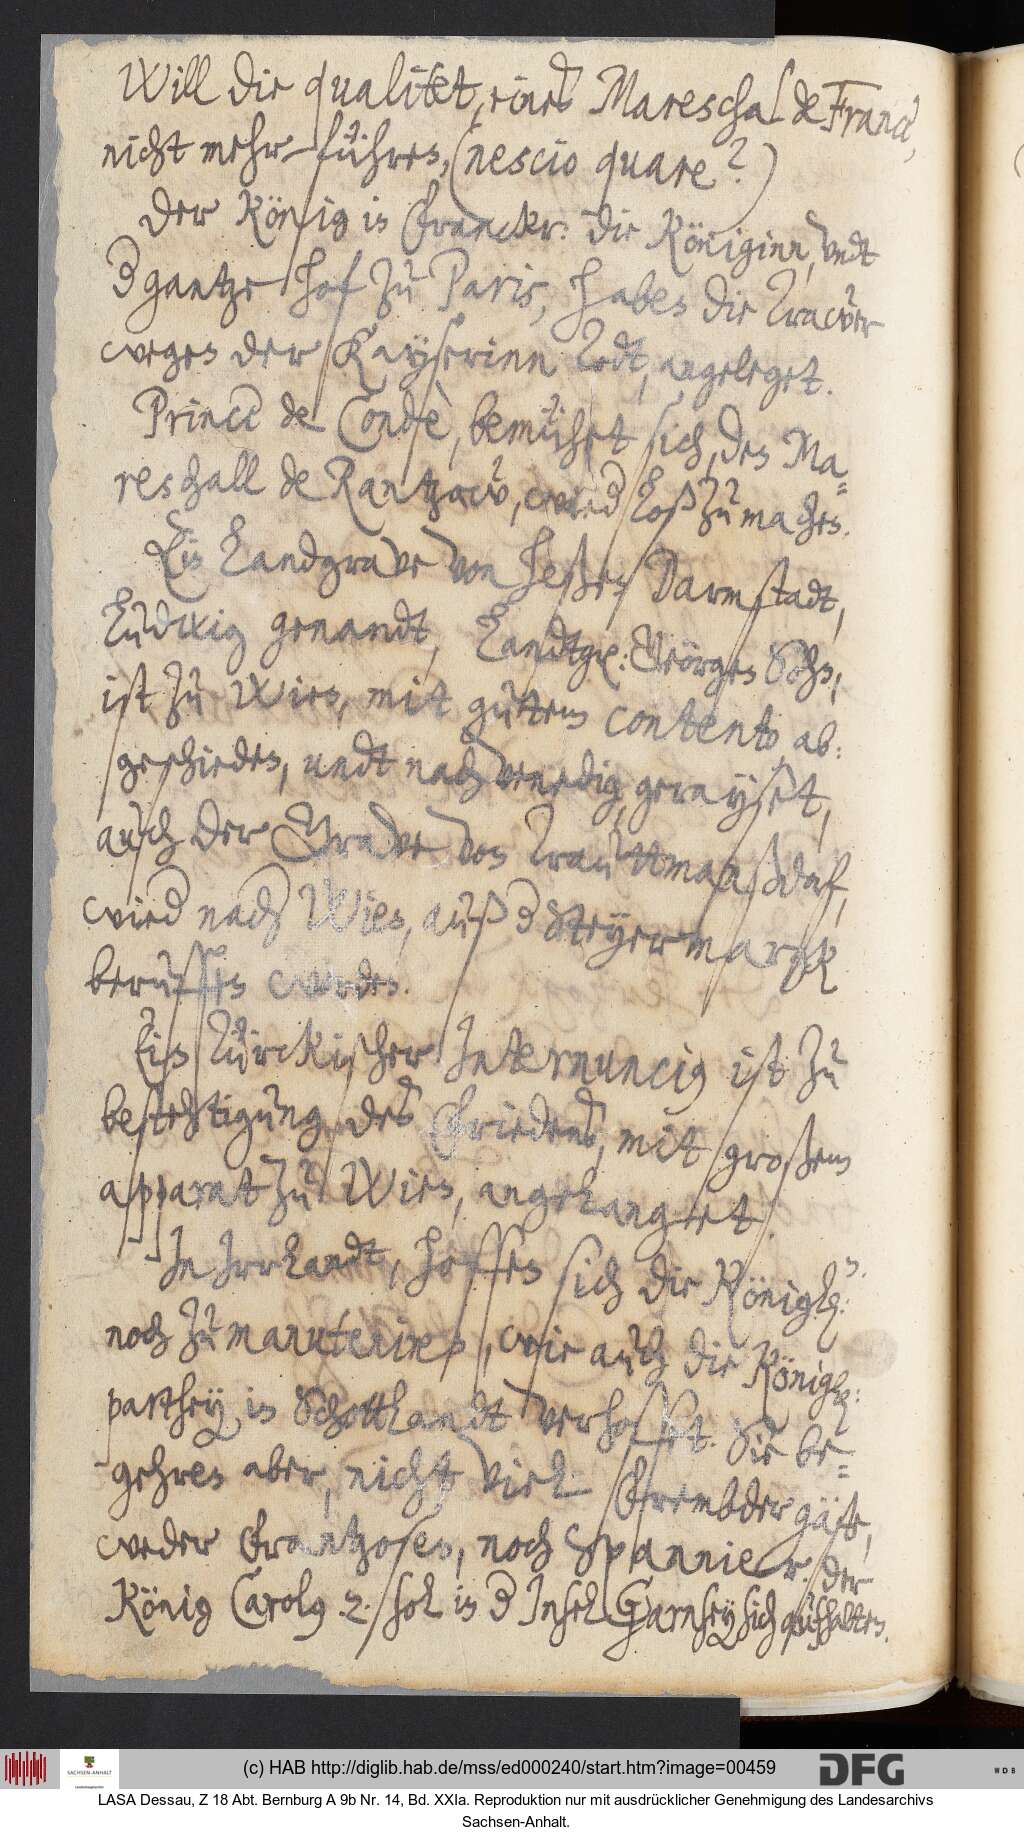 Will die qualitet, eines Mareschal de France,
nicht mehr führen, (nescio quare?)
Der König in Franckr: die Königinn, undt
gantze hof zu Paris, haben die Trawer
wegen der Kayserinn Todt, angeleget.
Prince de Condè, bemühet sich, den Ma-
reschall de Rantzow, wied loß zu machen.
Ein Landgrave von Heßen Darmstadt,
Ludwig genandt, Landtgr: Geörgen Sohn,
ist zu Wien, mit guttem contento, ab:
geschieden, undt nach Venedig, gerayset,
auch der Grave von Trauttmanßdorf,
wird nach Wien, auß Steyermarck
beruffen werden.
Ein Türckischer Internuncius ist zu
bestehtigung des Friedens, mit großem
apparat zu Wien, angelanget.
In Irrlandt, hoffen sich die Königl:
noch zu manuteniren, wie auch die Königl:
parthey in Schottlandt verhofft. Sie be-
gehren aber, nicht viel frembder gäste,
weder Frantzosen, noch Spannier. der
König Carolus .2. soll in Insel Garnsey sich aufhalten.
(c) HAB http://diglib.hab.de/mss/ed000240/start.htm?image=00459
DFG
SACHSEN-ANHALT
W D B
LASA Dessau, Z 18 Abt. Bernburg A 9b Nr. 14, Bd. XXIa. Reproduktion nur mit ausdrücklicher Genehmigung des Landesarchivs
Sachsen-Anhalt.